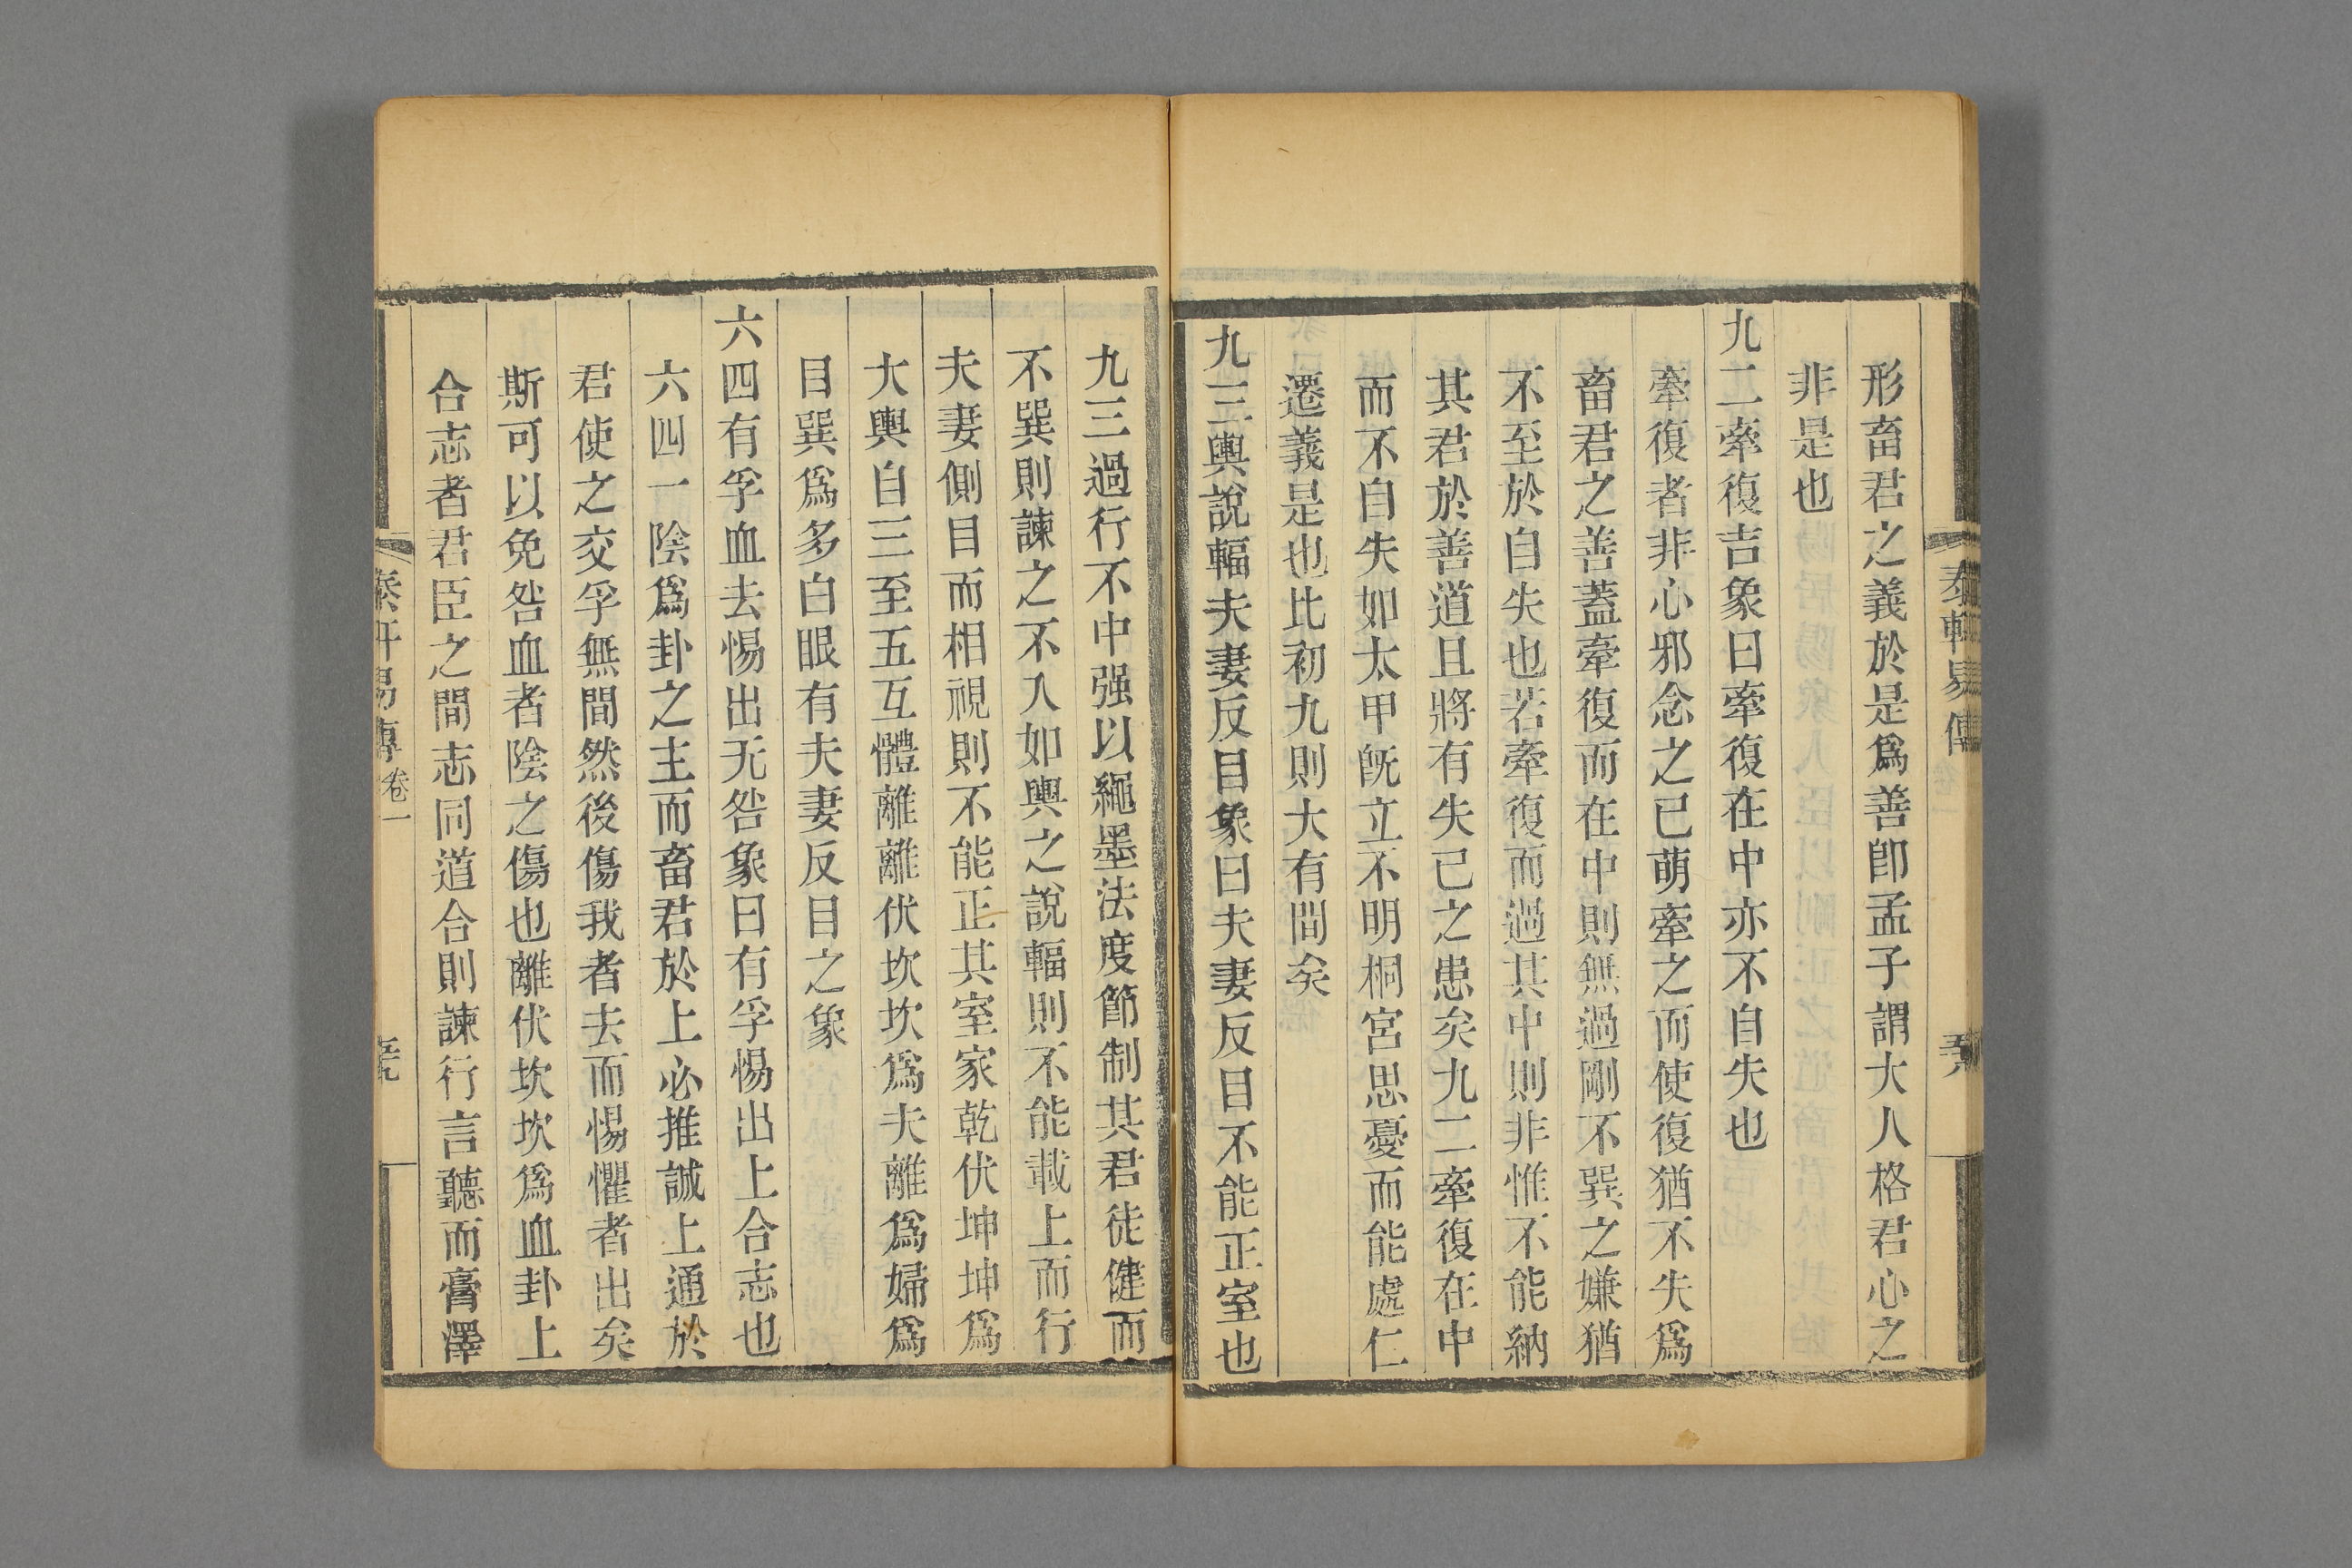 形畜君之義於是爲善卽孟子謂大人格君心之
非是也
九二牽復吉象曰牽復在中亦不自失也
牽復者非心邪念之已萌牽之而使復猶不失爲
畜君之善蓋牽復而在中則無過剛不巽之嫌猶
不至於自失也若牽復而過其中則非惟不能納
其君於善道且將有失己之患矣九二牽復在中
而不自失如太甲旣立不明桐宮思憂而能處仁
遷義是也比初九則大有間矣
九三輿說輻夫妻反目象曰夫妻反目不能正室也
九三過行不中强以繩墨法度節制其君徒健而
不巽則諫之不入如輿之說輻則不能載上而行
夫妻側目而相視則不能正其室家乾伏坤坤爲
大輿自三至五互體離離伏坎坎爲夫離爲婦爲
目巽爲多白眼有夫妻反目之象
六四有孚血去惕出无咎象曰有孚惕出上合志也
六四一陰爲卦之主而畜君於上必推誠上通於
君使之交孚無間然後傷我者去而惕懼者出矣
斯可以免咎血者陰之傷也離伏坎坎爲血卦上
合志者君臣之間志同道合則諫行言聽而膏澤
易傳 卷一